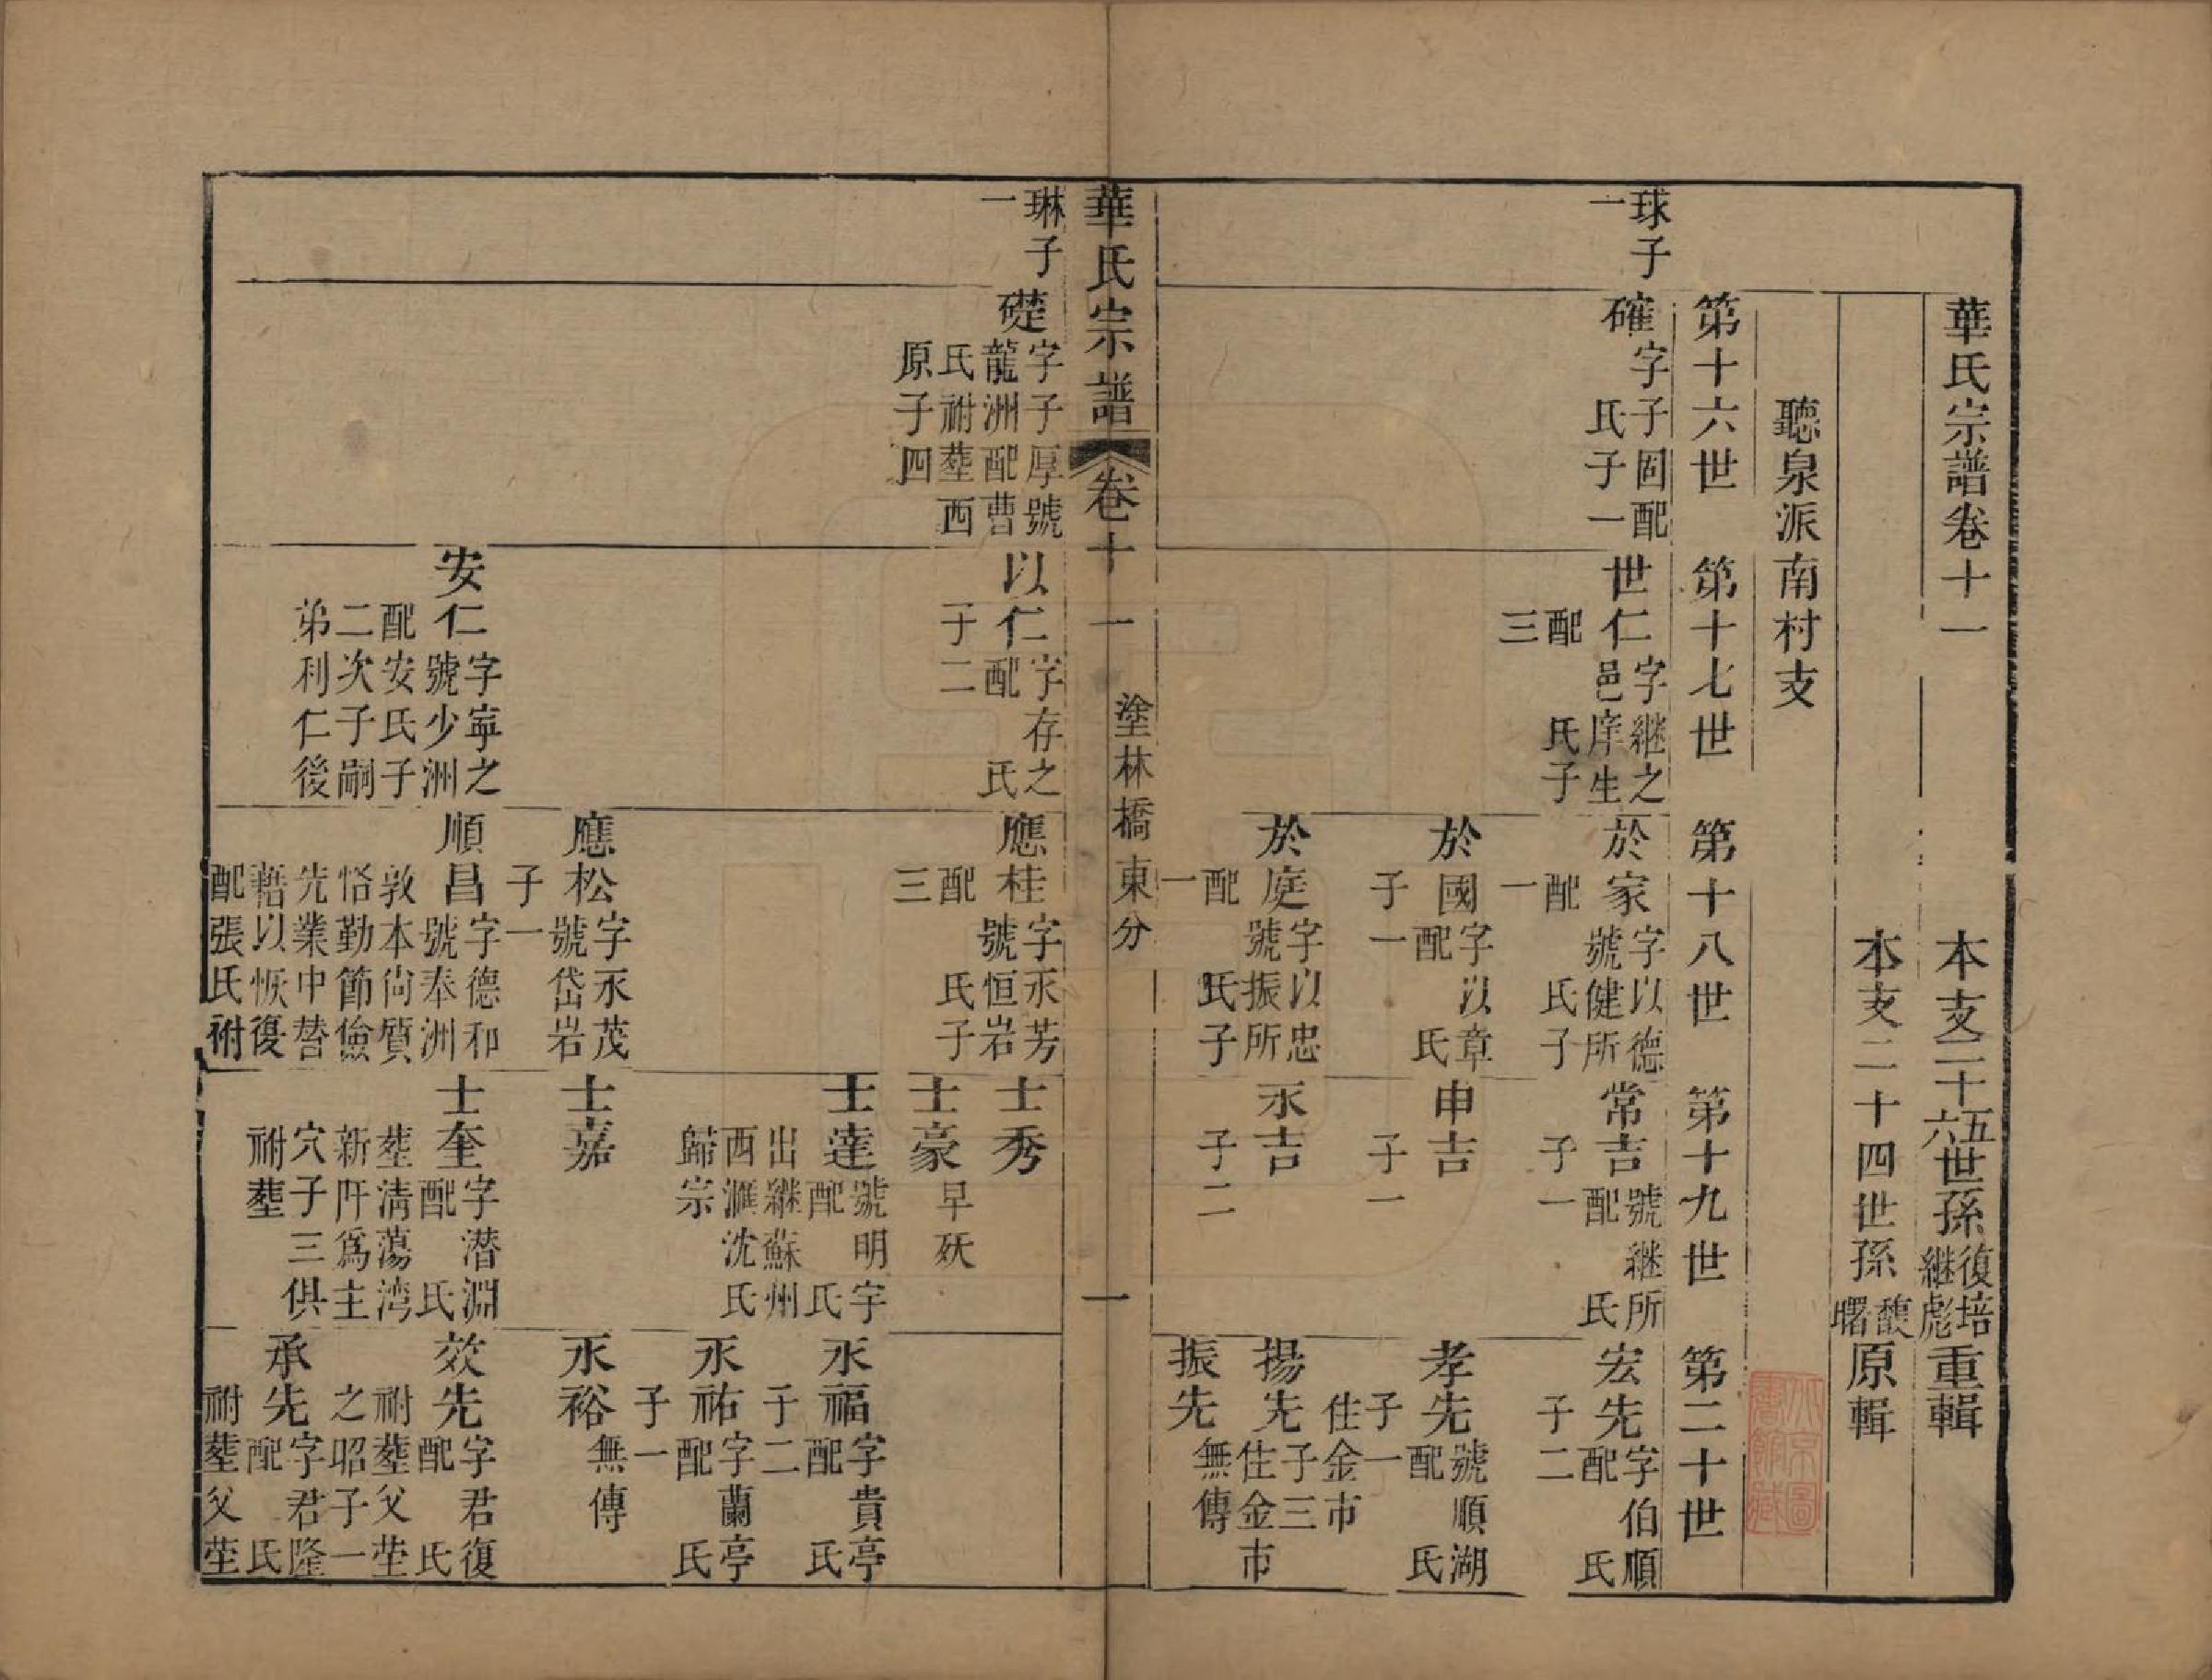 華氏宗譜卷十一
本支二十五六世孫復培繼彪重輯
本支二十四世孫馥曙原輯
聽泉派南村支
第十六世
第十七世
第十八世
第十九世
第二十世
球子一
確字子固配 氏子一
世仁字繼之邑庠生配 氏子三
於家字以德號健所配 氏子一
常吉號繼所配 氏子一
宏先字伯順配 氏子二
於國字以章配 氏子一
申吉子一
孝先號順湖配 氏子一住金市
於庭字以忠號振所配 氏子一
永吉子二
揚先子三住金市
振先無傳
華氏宗譜
卷十一
塗林橋東分
一
琳子一
礎字子厚號龍洲配曹氏祔塟西原子四
以仁字存之配 氏子二
應桂字永芳號恒岩配 氏子三
士秀
士豪早殀
士達號明宇配 氏出繼蘇州西滙沈氏歸宗
永福字貴亭配 氏子二
永祐字蘭亭配 氏子一
應松字永茂號岱岩子一
士嘉
永裕無傳
安仁字寧之號少洲配安氏子二次子嗣弟利仁後
順昌字德和號奉洲敦本尙質恪勤節儉先業中替藉以恢復配張氏祔
士奎字潜淵配 氏塟淸蕩湾新阡爲主穴子三俱祔塟
效先字君復配 氏祔塟父塋之昭子一
承先字君隆配 氏祔塟父塋